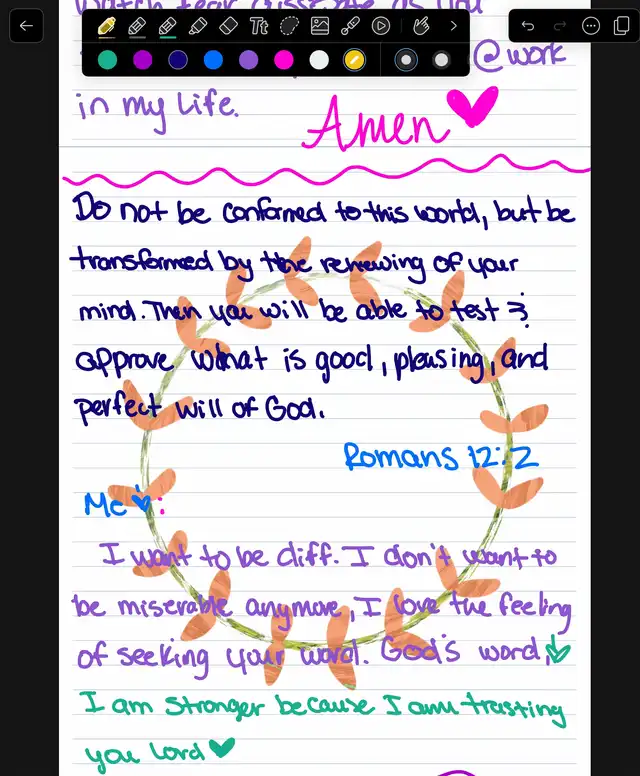 watch fear dissipate as you
@work
in my life.
Amen
Do not be conformed to this world, but be
transformed by the renewing of your
mind. Then you will be able to test &
approve what is good, pleasing, and
perfect will of God.
Romans 12:2
Me :
I want to be diff. I don't want to
be miserable anymore, I love the feeling
of seeking your word. God's word,
I am stronger because I am trusting
you Lord
Tt